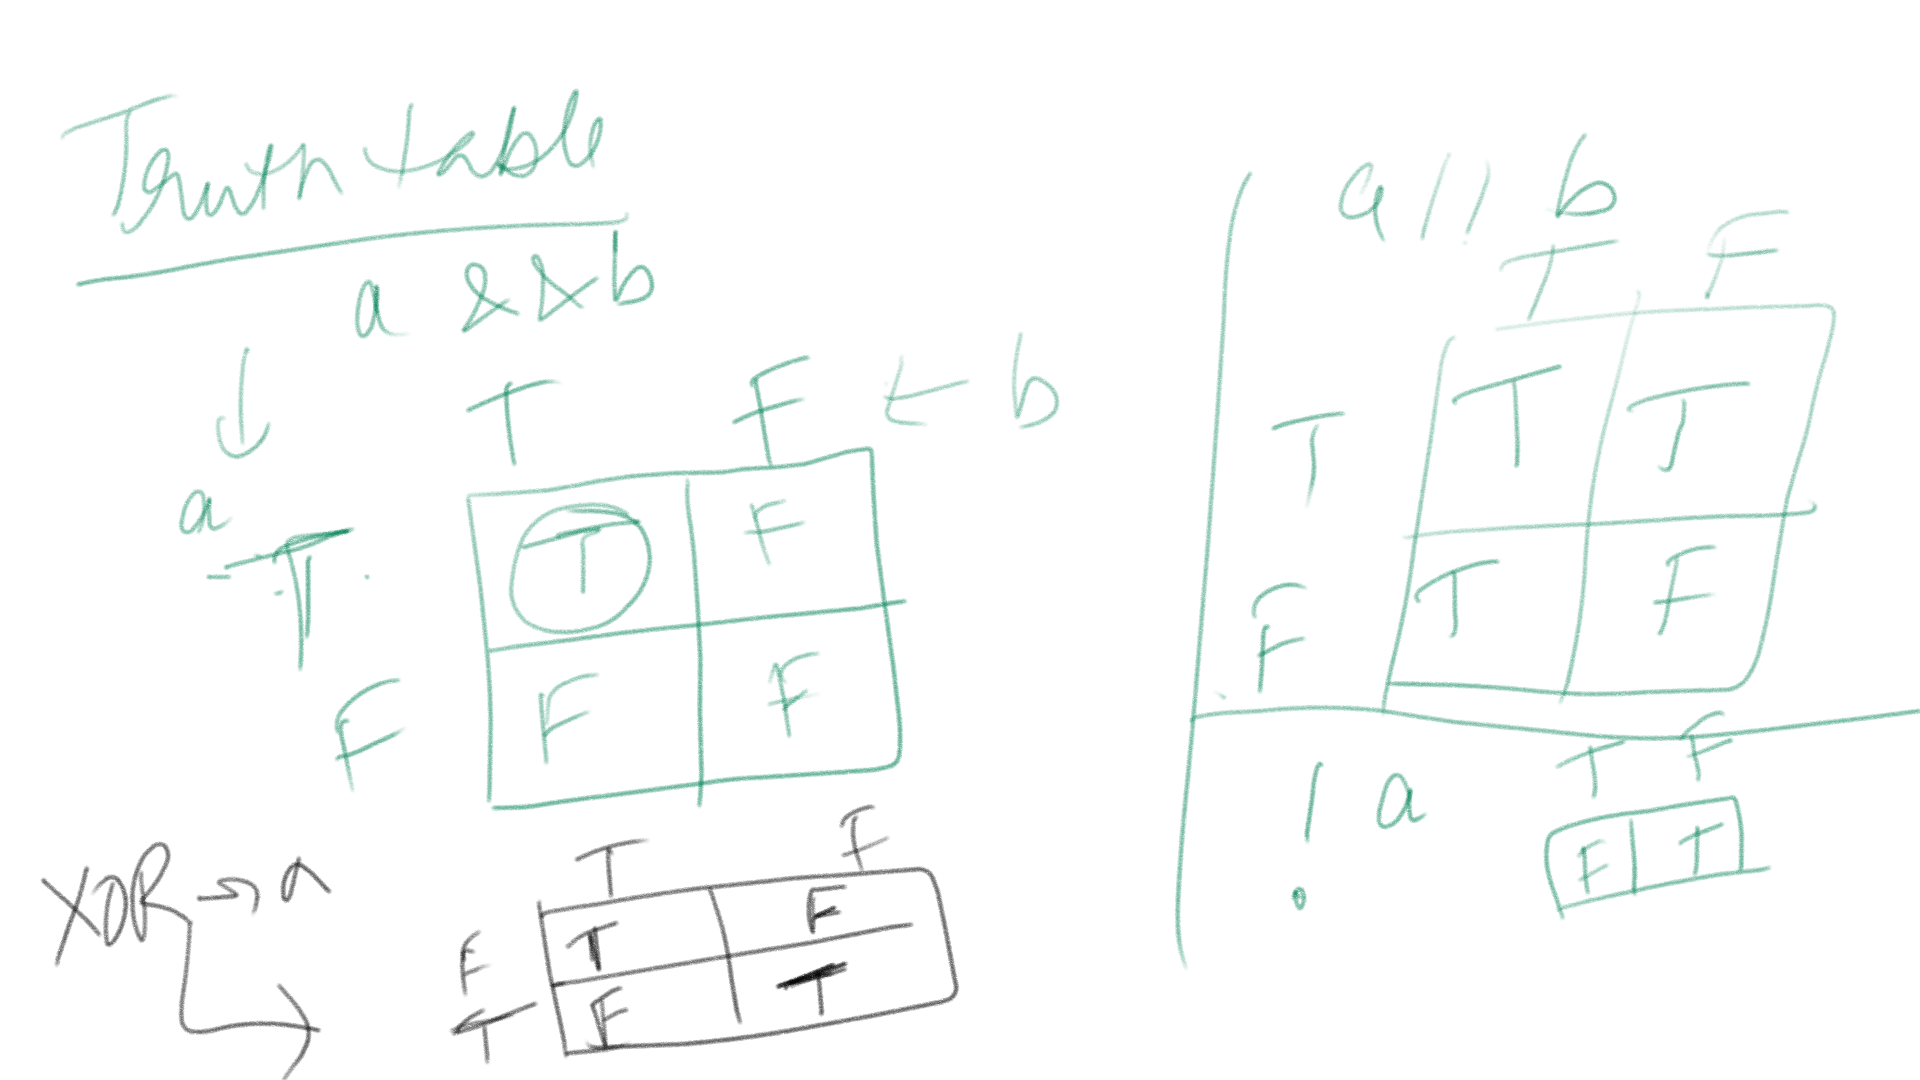 Truth table
a && b
T F ← b
↓
a
T T F
F F F
XOR → a
T F
F T F
T F T
a || b
T F
T T T
F T F
! a
T F
F T